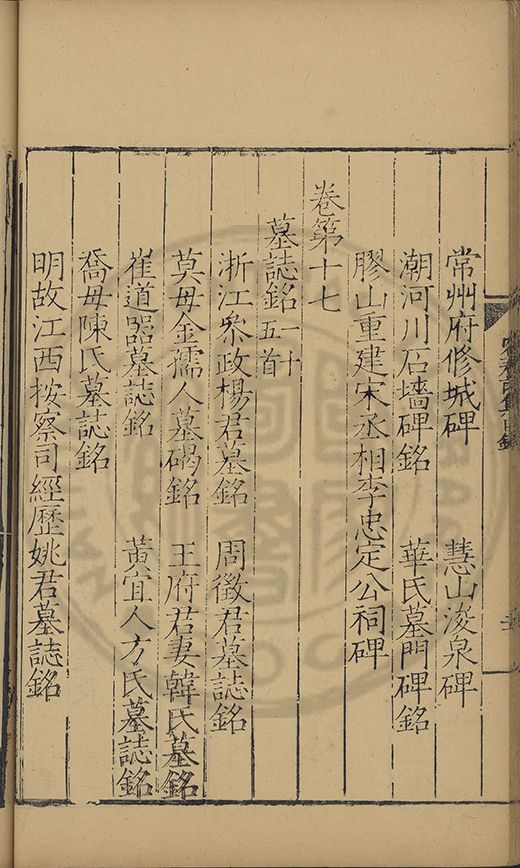 常州府修城碑　慧山浚泉碑
潮河川石墻碑銘　華氏墓門碑銘
膠山重建宋丞相李忠定公祠碑
卷第十七
墓誌銘一十五首
浙江叅政楊君墓銘　周徵君墓誌銘
莫母金孺人墓碣銘　王府君妻韓氏墓銘
崔道器墓誌銘　黃宜人方氏墓誌銘
喬母陳氏墓誌銘
明故江西按察司經歷姚君墓誌銘